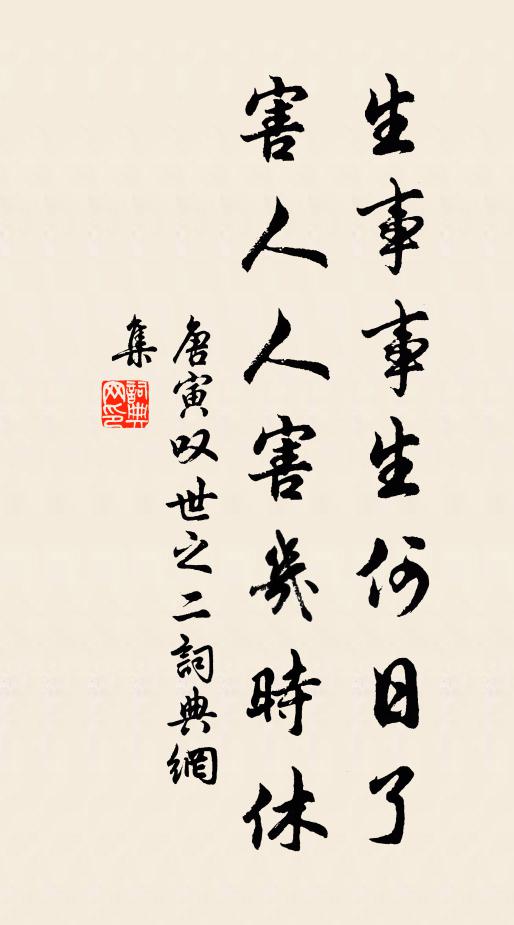 生事事生何日了
害人人害幾時休
唐寅叹世之二詞典網
集
詞典
网印